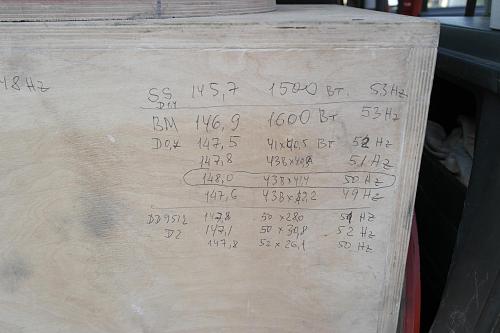 48Hz
SS 145,7 1500 Вт. 53Hz
D1,1
BM 146,9 1600 Вт 53Hz
D0,4 147,5 41x40,5 Вт 52Hz
147,8 43В x 51Hz
148,0 43В x 41,4 50 Hz
147,6 43В x 42,2 49 Hz
147,8 50 x 28,0 Hz
D2 147,1 50 x 30,8 52 Hz
147,8 52 x 26,1 50 Hz